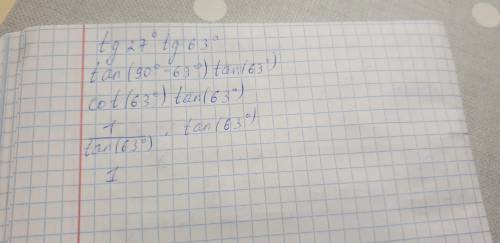 tg 27° tg 63°
tan(90° - 63°) tan(63°)
cot(63°) tan(63°)
1
tan(63°) · tan(63°)
1